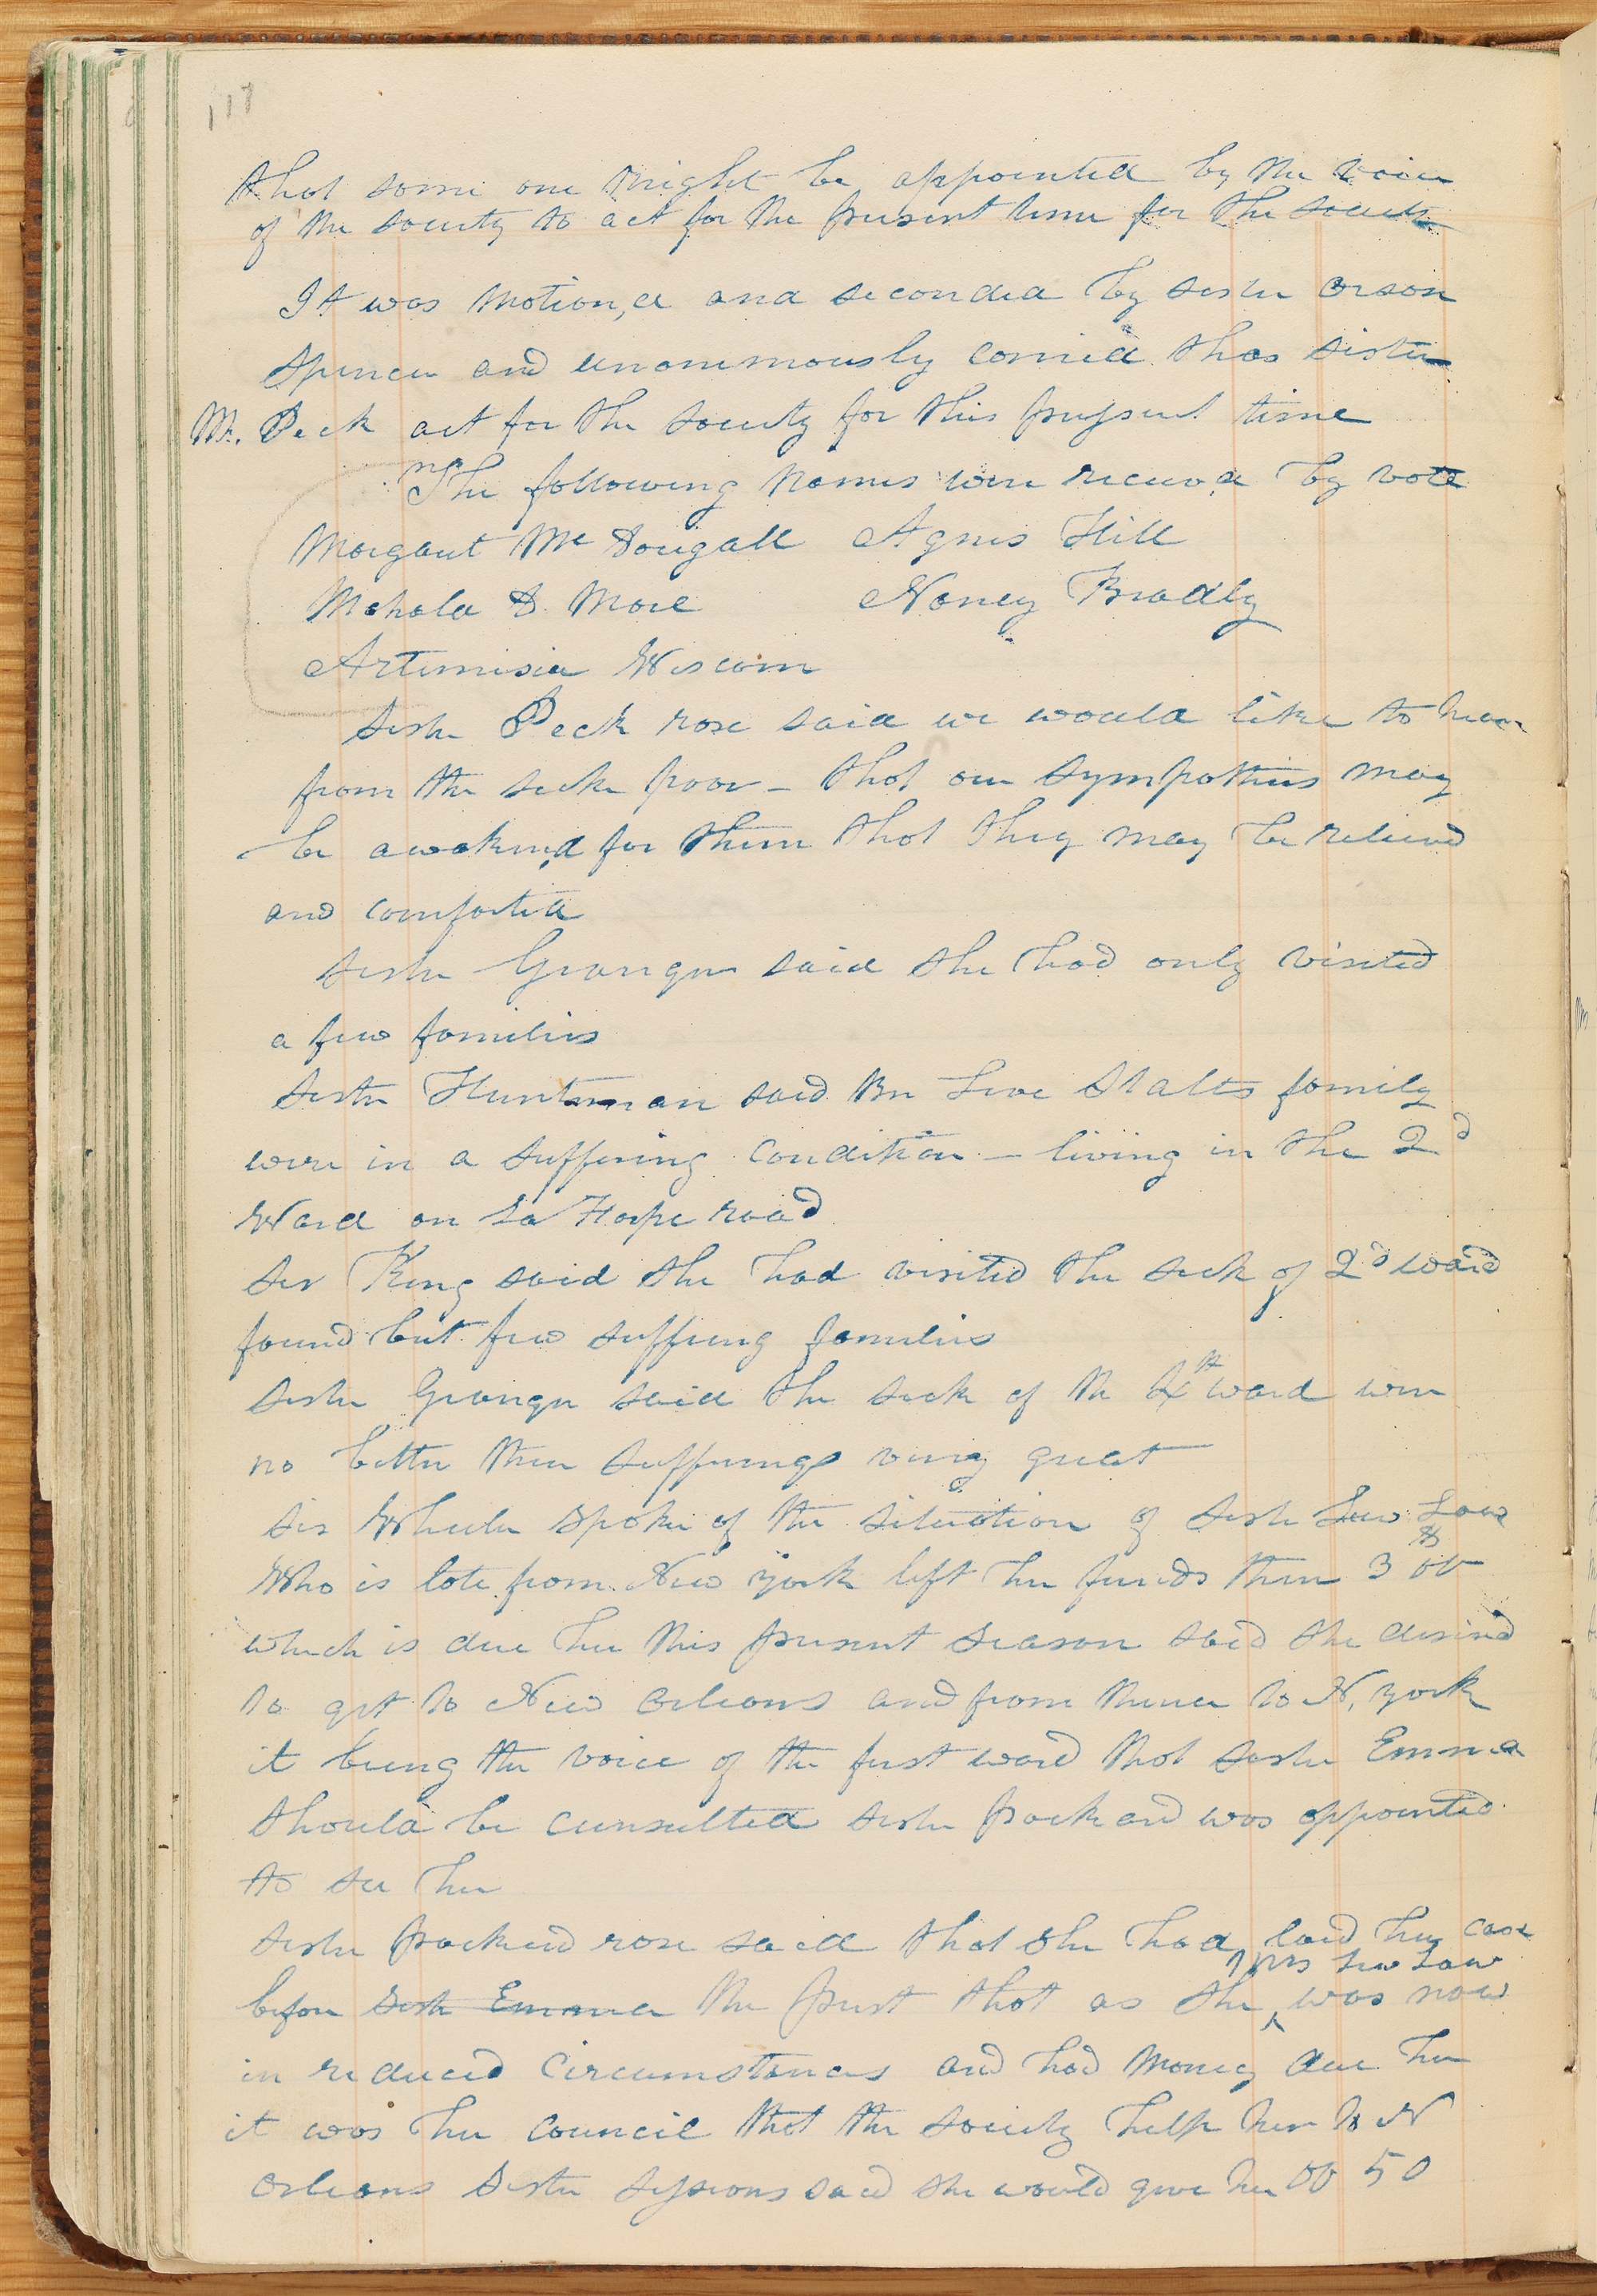 117
that some one might be appointed by the voice
of the society to act for the present time for the society
It was motion,d and seconded by sister Orson
Spencer and unonimously carried that sister
M. Peck act for the Society for this pressent time
The following names were receivd by vote
Margaut Mc Dougall Agnes Hill
Mahala D. More Nancy Bradly
Artemisia Wiscom
Sister Peck rose said we would like to hear
from the sick poor - that our sympathies may
be awakend for them that they may be relievd
and comforted
Sister Granger said she had only visited
a few families
Sister Huntsman said Br Stalts family
were in a suffering condition - living in the 2d
Ward on La Harpe road
Sis King said she had visited the sick of 2d ward
found but few suffering families
Sister Granger said the sick of the 4th ward were
no better their sufferings very great
Sis Wheeler spoke of the situation of Sister Law
Who is late from New york left her funds there 3 00
which is due her this present season said she desired
to get to New Orleans and from thence to N. york
it being the voice of the first ward that sister Emma
should be cunsulted sister packard was appointed
to see her
Sister packard rose said that she had laid her case
before Sister Emma the Prest that as she Mrs Law was now
in reduced circumstances and had money due her
it was her council that the Society help her to N
Orleans Sister Sessions said she would give her 00 50